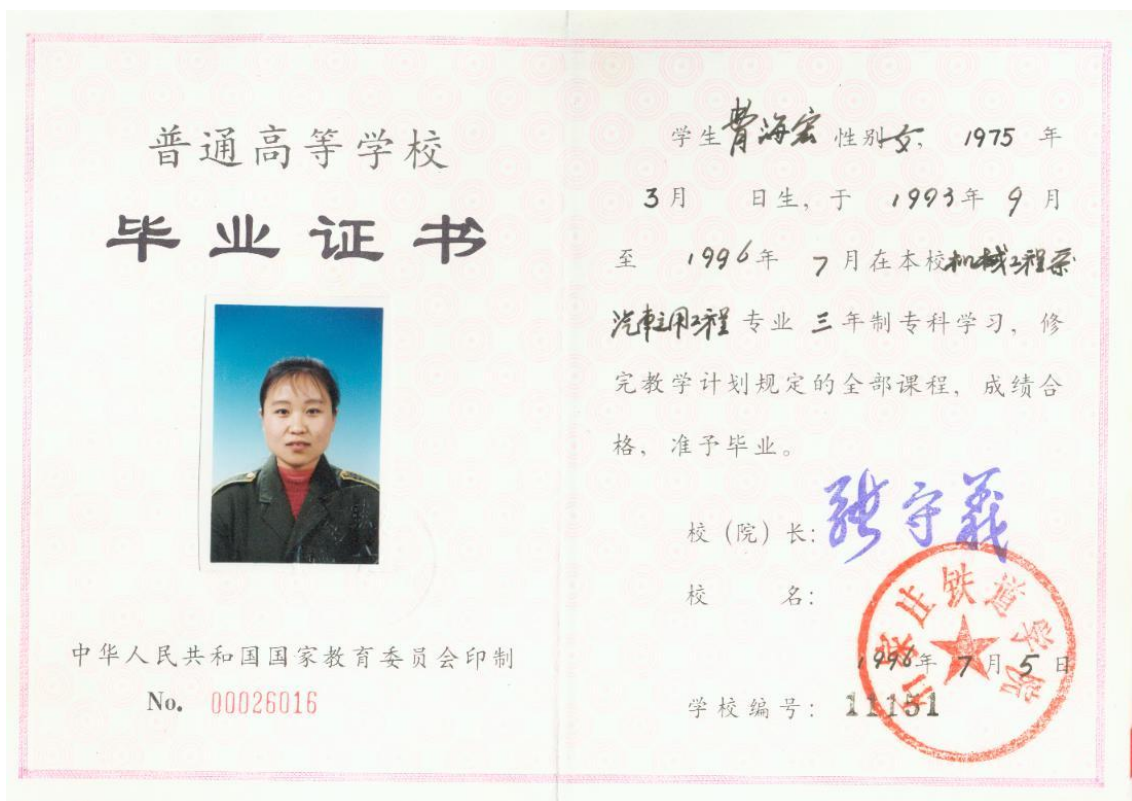 普通高等学校
毕业证书
中华人民共和国国家教育委员会印制
No. 00026016
学生 海宏 性别女, 1975 年
3月 日生, 于 1993年 9 月
至 1996年 7月在本校机械工程系
汽車运用工程 专业 三年制专科学习, 修
完教学计划规定的全部课程, 成绩合
格, 准予毕业。
校 (院) 长: 张守義
校 名:
石家庄铁道学院
1996年 7月 5日
学校编号: 11151